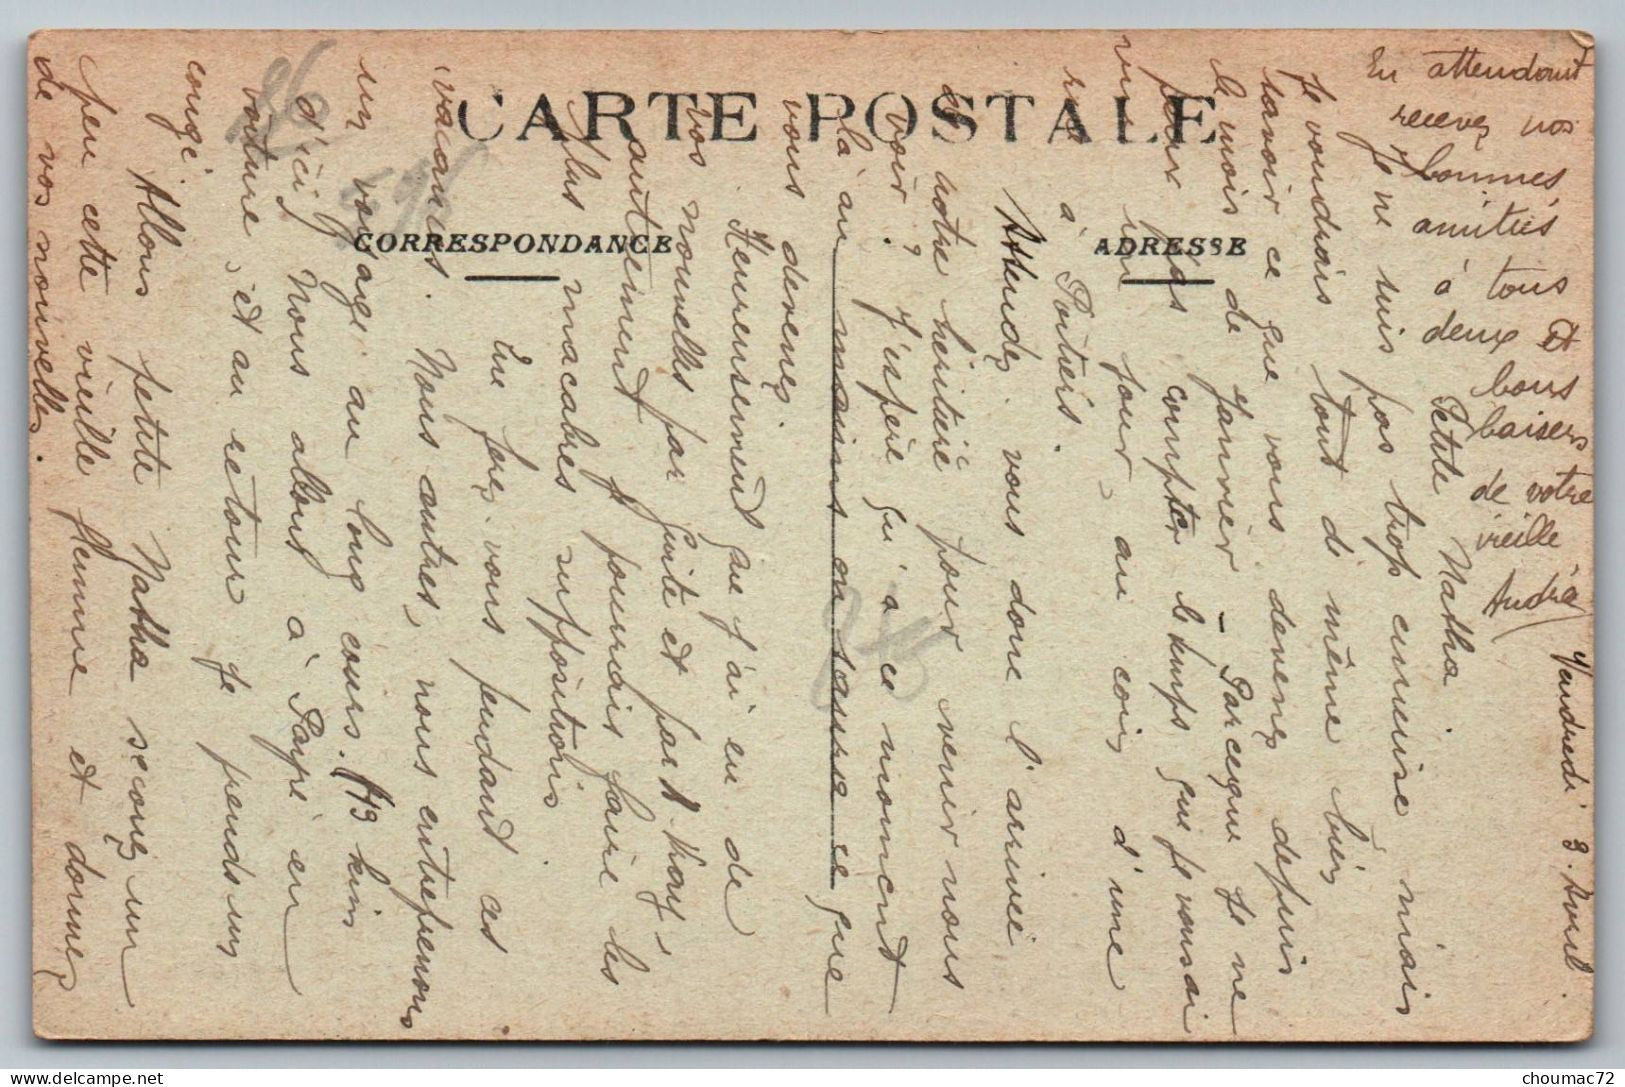 CARTE POSTALE
CORRESPONDANCE
ADRESSE
Vendredi 3. Avril.
Petite Natha
Je ne suis pas trop curieuse mais
je voudrais tout de même bien
savoir ce que vous devenez depuis
le mois de Janvier - Parceque je ne
peux pas compter le temps que je vous ai
vus un jour, au coin d'une
rue à Poitiers.
Attendez vous donc l'arrivée
de notre héritière pour venir nous
voir? J'espère qu'à ce moment
là au moins on saura ce que
vous devenez.
Heureusement que j'ai eu de
vos nouvelles par Guite et par
autrement je pourrais faire les
plus macabres suppositions.
Que ferez vous pendant ces
vacances. Nous autres, nous entreprenons
un voyage au long cours. (13 kms
d'ici). Nous allons à Payré en
voiture, et au retour je prends un
congé.
Allons petite Natha secouez un
peu cette vieille flemme et donnez
de vos nouvelles.
En attendant
recevez nos
bonnes
amitiés
à tous
deux et
bons
baisers
de votre
vieille
Andréa
choumac72